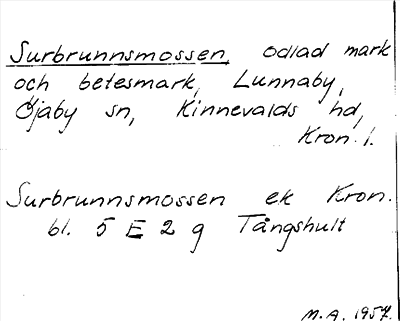 Surbrunnsmossen, odlad mark
och betesmark, Lunnaby,
Öjaby sn, Kinnevalds hd,
Kron. l.
Surbrunnsmossen ek Kron.
bl. 5 E 2 g Tångshult
M.A. 1957.